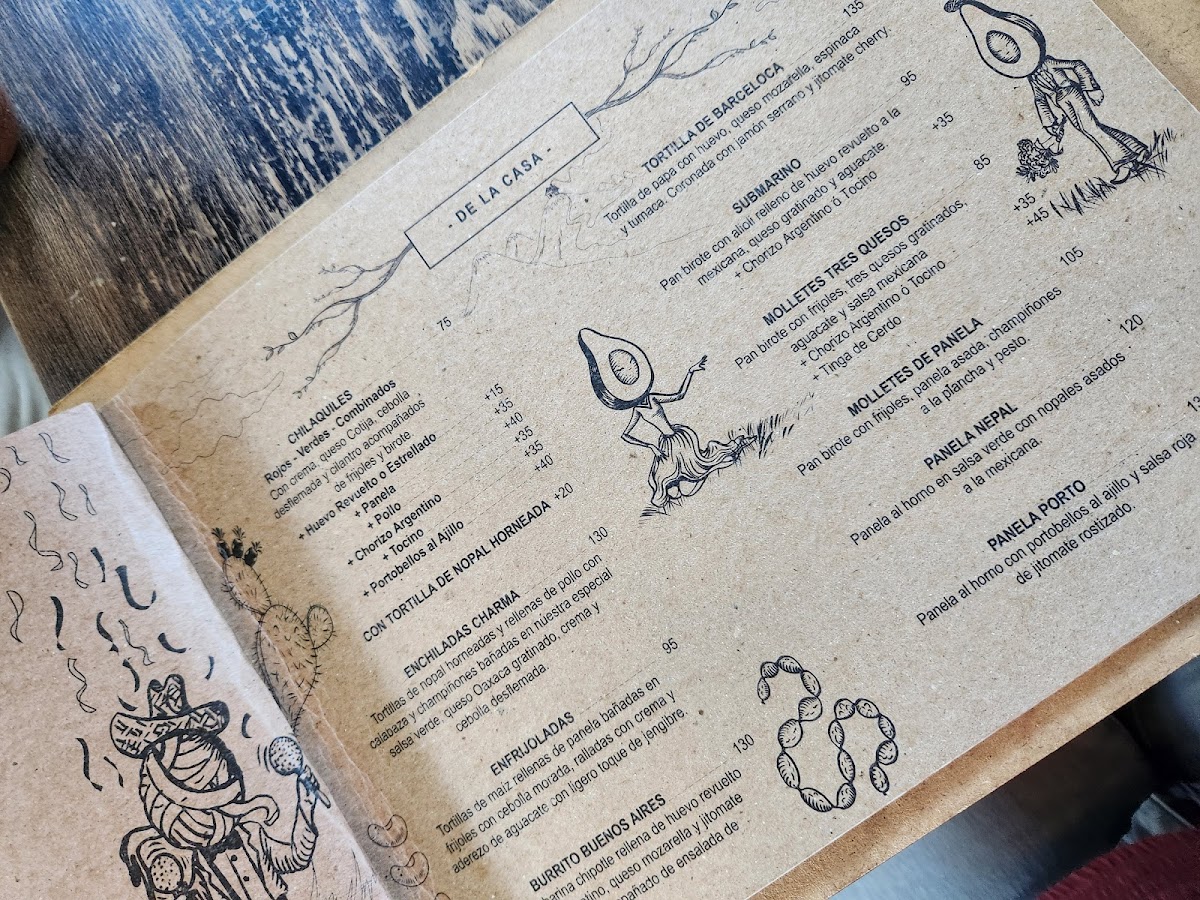 - DE LA CASA -
CHILAQUILES 75
Rojos - Verdes - Combinados
Con crema, queso Cotija, cebolla
desflemada y cilantro acompañados
de frijoles y birote
+ Huevo Revuelto o Estrellado +15
+ Panela +35
+ Pollo +40
+ Chorizo Argentino +35
+ Tocino +35
+ Portobellos al Ajillo +40
CON TORTILLA DE NOPAL HORNEADA +20
ENCHILADAS CHARMA 130
Tortillas de nopal horneadas y rellenas de pollo con
calabaza y champiñones bañadas en nuestra especial
salsa verde, queso Oaxaca gratinado, crema y
cebolla desflemada.
ENFRIJOLADAS 95
Tortillas de maíz rellenas de panela bañadas en
frijoles con cebolla morada, ralladas con crema y
aderezo de aguacate con ligero toque de jengibre.
BURRITO BUENOS AIRES 130
harina chipotle rellena de huevo revuelto
tino, queso mozarella y jitomate
pañado de ensalada de
TORTILLA DE BARCELOCA 135
Tortilla de papa con huevo, queso mozarella, espinaca
y tumaca. Coronada con jamón serrano y jitomate cherry.
SUBMARINO 95
Pan birote con alioli relleno de huevo revuelto a la
mexicana, queso gratinado y aguacate.
+ Chorizo Argentino ó Tocino +35
MOLLETES TRES QUESOS 85
Pan birote con frijoles, tres quesos gratinados,
aguacate y salsa mexicana
+ Chorizo Argentino ó Tocino +35
+ Tinga de Cerdo +45
MOLLETES DE PANELA 105
Pan birote con frijoles, panela asada, champiñones
a la plancha y pesto.
PANELA NEPAL 120
Panela al horno en salsa verde con nopales asados
a la mexicana.
PANELA PORTO
Panela al horno con portobellos al ajillo y salsa roja
de jitomate rostizado.